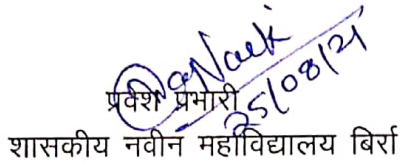 25/08/21
प्रवेश प्रभारी
शासकीय नवीन महाविद्यालय बिर्रा